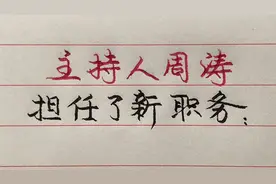 主持人周涛
担任了新职务: